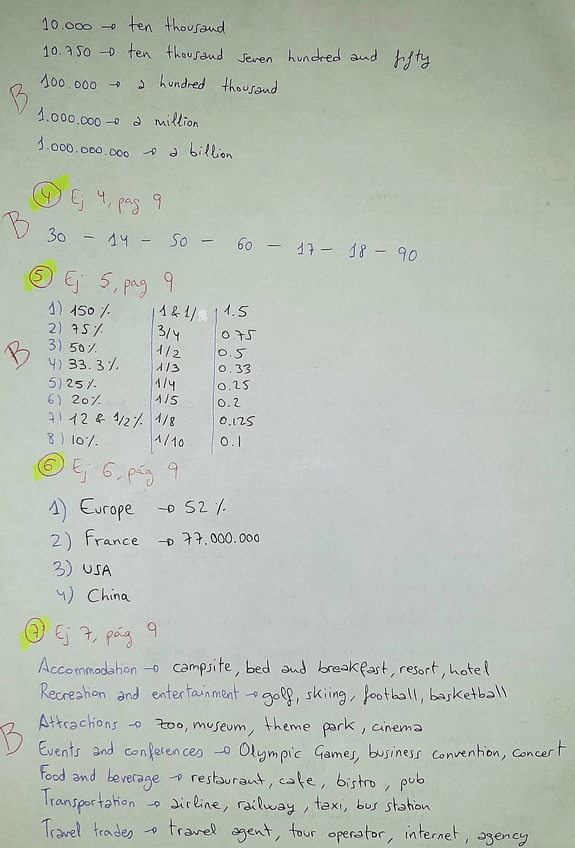 10.000 → ten thousand
10.750 → ten thousand seven hundred and fifty
100.000 → a hundred thousand
B
1.000.000 → a million
1.000.000.000 → a billion
4 Ej 4, pag 9
B
30 - 14 - 50 - 60 - 17 - 18 - 90
5 Ej 5, pag 9
1) 150 % 1 & 1/ 1.5
2) 75 % 3/4 0.75
3) 50% 1/2 0.5
B
4) 33.3 % 1/3 0.33
5) 25 % 1/4 0.25
6) 20% 1/5 0.2
7) 12 & 1/2 % 1/8 0.125
8) 10% 1/10 0.1
6 Ej 6, pág 9
1) Europe → 52 %
2) France → 77.000.000
3) USA
4) China
7 Ej 7, pág 9
Accommodation → campsite, bed and breakfast, resort, hotel
Recreation and entertainment → golf, skiing, football, basketball
Attractions → zoo, museum, theme park, cinema
B
Events and conferences → Olympic Games, business convention, concert
Food and beverage → restaurant, cafe, bistro, pub
Transportation → airline, railway, taxi, bus station
Travel trades → travel agent, tour operator, internet, agency